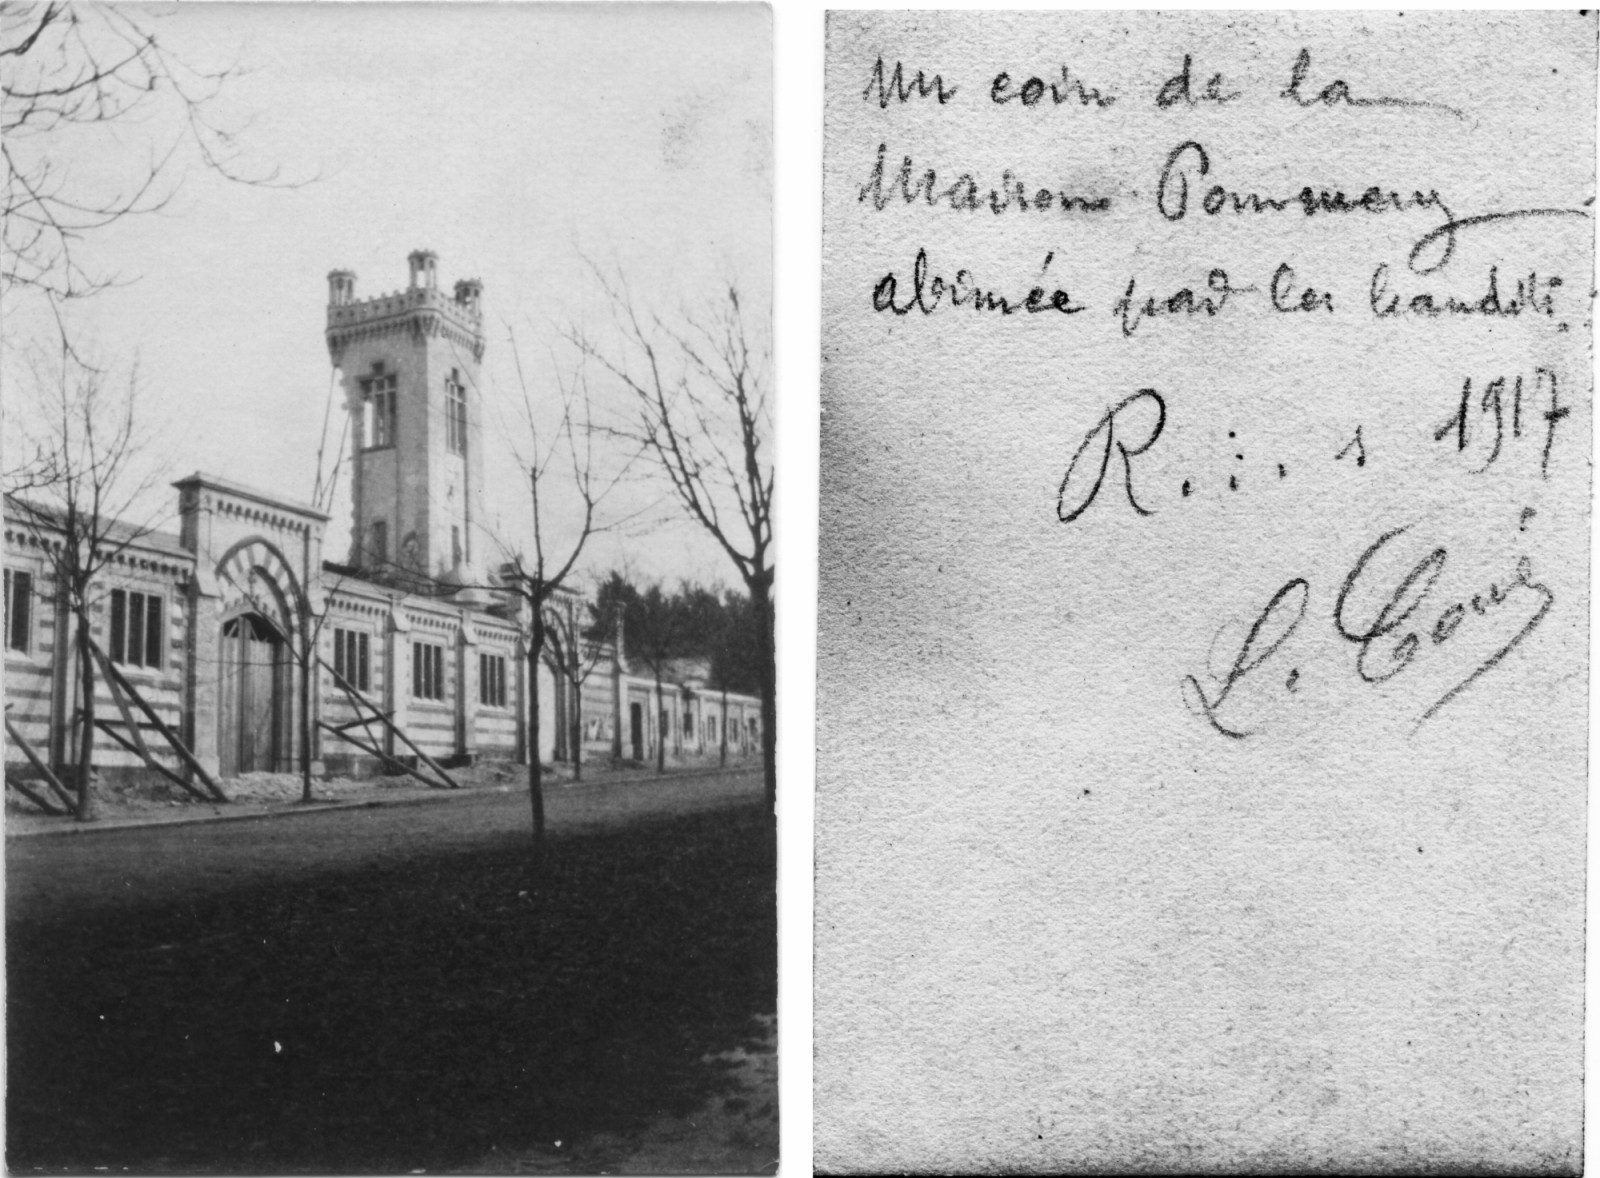 Un coin de la
Maison Pommery
abimée par les bandits.
R.i.s 1917
L. Couë